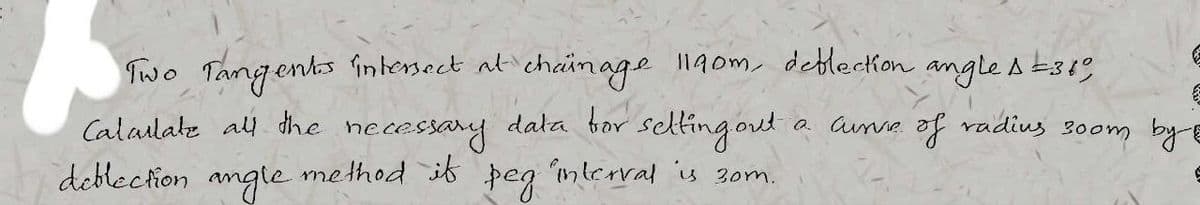 Two Tangents intersect at chainage 1190m, deflection angle Δ =36°,
Calculate all the necessary data for setting out a curve of radius 300m by
deflection angle method if peg interval is 30m.